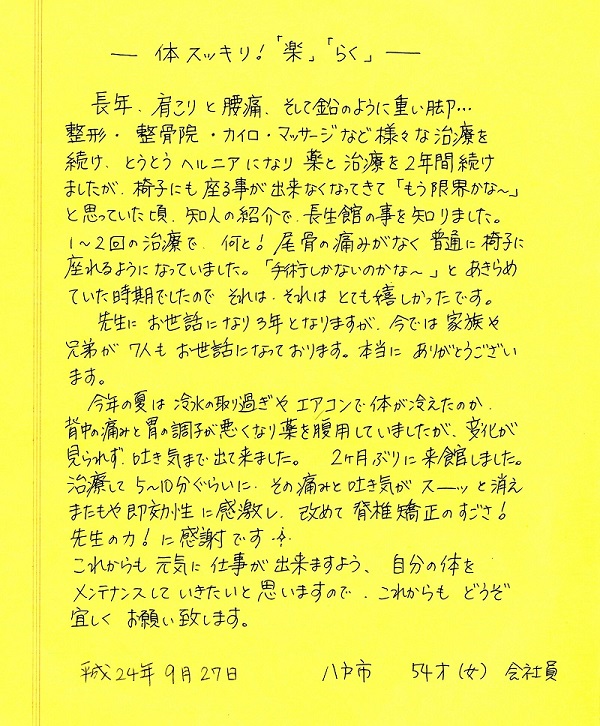 ― 体スッキリ!「楽」「らく」―
長年、肩こりと腰痛、そして鉛のように重い脚…
整形・整骨院・カイロ・マッサージなど様々な治療を
続け、とうとうヘルニアになり薬と治療を2年間続け
ましたが、椅子にも座る事が出来なくなってきて「もう限界かな~」
と思っていた頃、知人の紹介で、長生館の事を知りました。
1~2回の治療で、何と!尾骨の痛みがなく普通に椅子に
座れるようになっていました。「手術しかないのかな~」とあきらめ
ていた時期でしたので それは、それは とても嬉しかったです。
先生に お世話になり3年となりますが、今では 家族や
兄弟が 7人も お世話になっております。本当に ありがとうござい
ます。
今年の夏は 冷水の取り過ぎや エアコンで体が冷えたのか、
背中の痛みと胃の調子が悪くなり薬を腹用していましたが、変化が
見られず、吐き気まで出て来ました。 2ヶ月ぶりに来館しました。
治療して 5~10分ぐらいに、その痛みと吐き気が スーッと消え
またもや即効性に感激し、改めて 脊椎矯正のすごさ!
先生の力!に感謝です
これからも 元気に 仕事が出来ますよう、自分の体を
メンテナンスしていきたいと思いますので、これからも どうぞ
宜しく お願い致します。
平成24年9月27日 八女市 54才(女) 会社員